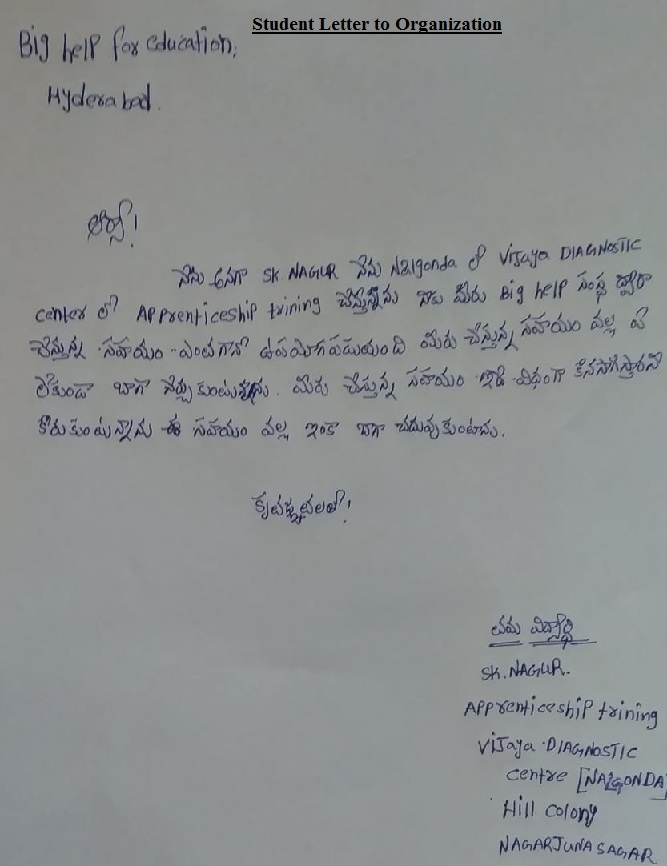 Student Letter to Organization
Big help for education,
Hyderabad.
ఆర్యా!
నేను అనగా SK NAGUR నేను Nalgonda లో Vijaya DIAGNOSTIC
center లో Apprenticeship trining చేస్తున్నాను నాకు మీరు Big help సంస్థ ద్వారా
చేస్తున్న సహాయం ఎంతగానో ఉపయోగపడుయుంది మీరు చేస్తున్న సహాయం వల్ల ఏ
లేకుండా బాగా నేర్చుకుంటున్నాను. మీరు చేస్తున్న సహాయం ఇదే విధంగా కొనసాగిస్తారని
కోరుకుంటున్నాను ఈ సహాయం వల్ల ఇంకా బాగా చదువుకుంటాను.
కృతజ్ఞతలతో!
తమ విద్యార్థి
SK. NAGUR.
Apprenticeship training
Vijaya DIAGNOSTIC
centre [NALGONDA]
Hill Colony
NAGARJUNA SAGAR